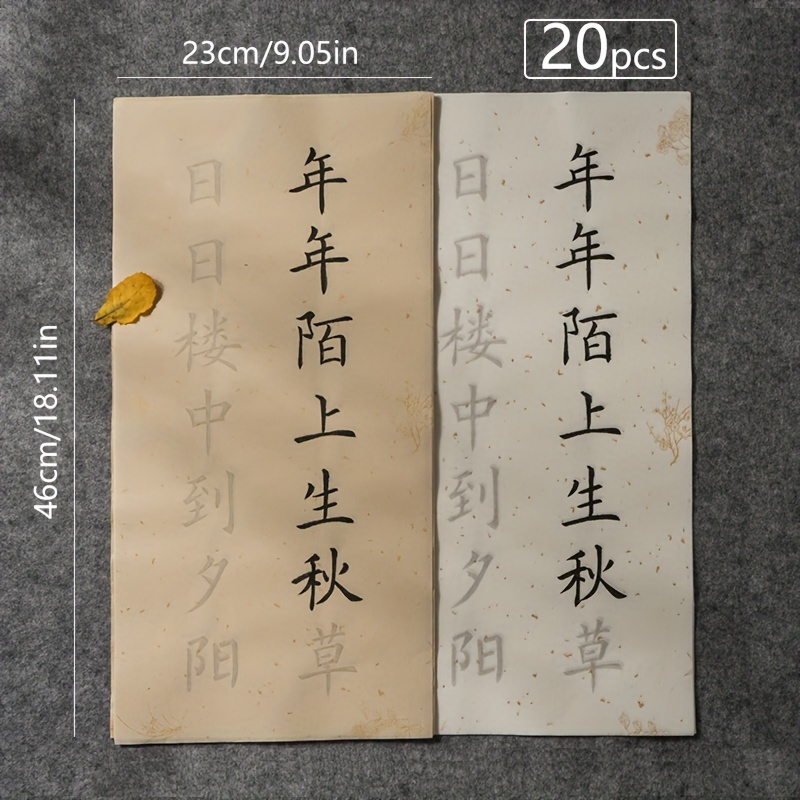 23cm/9.05in
20pcs
46cm/18.11in
年年陌上生秋草
日日楼中到夕阳
年年陌上生秋草
日日楼中到夕阳